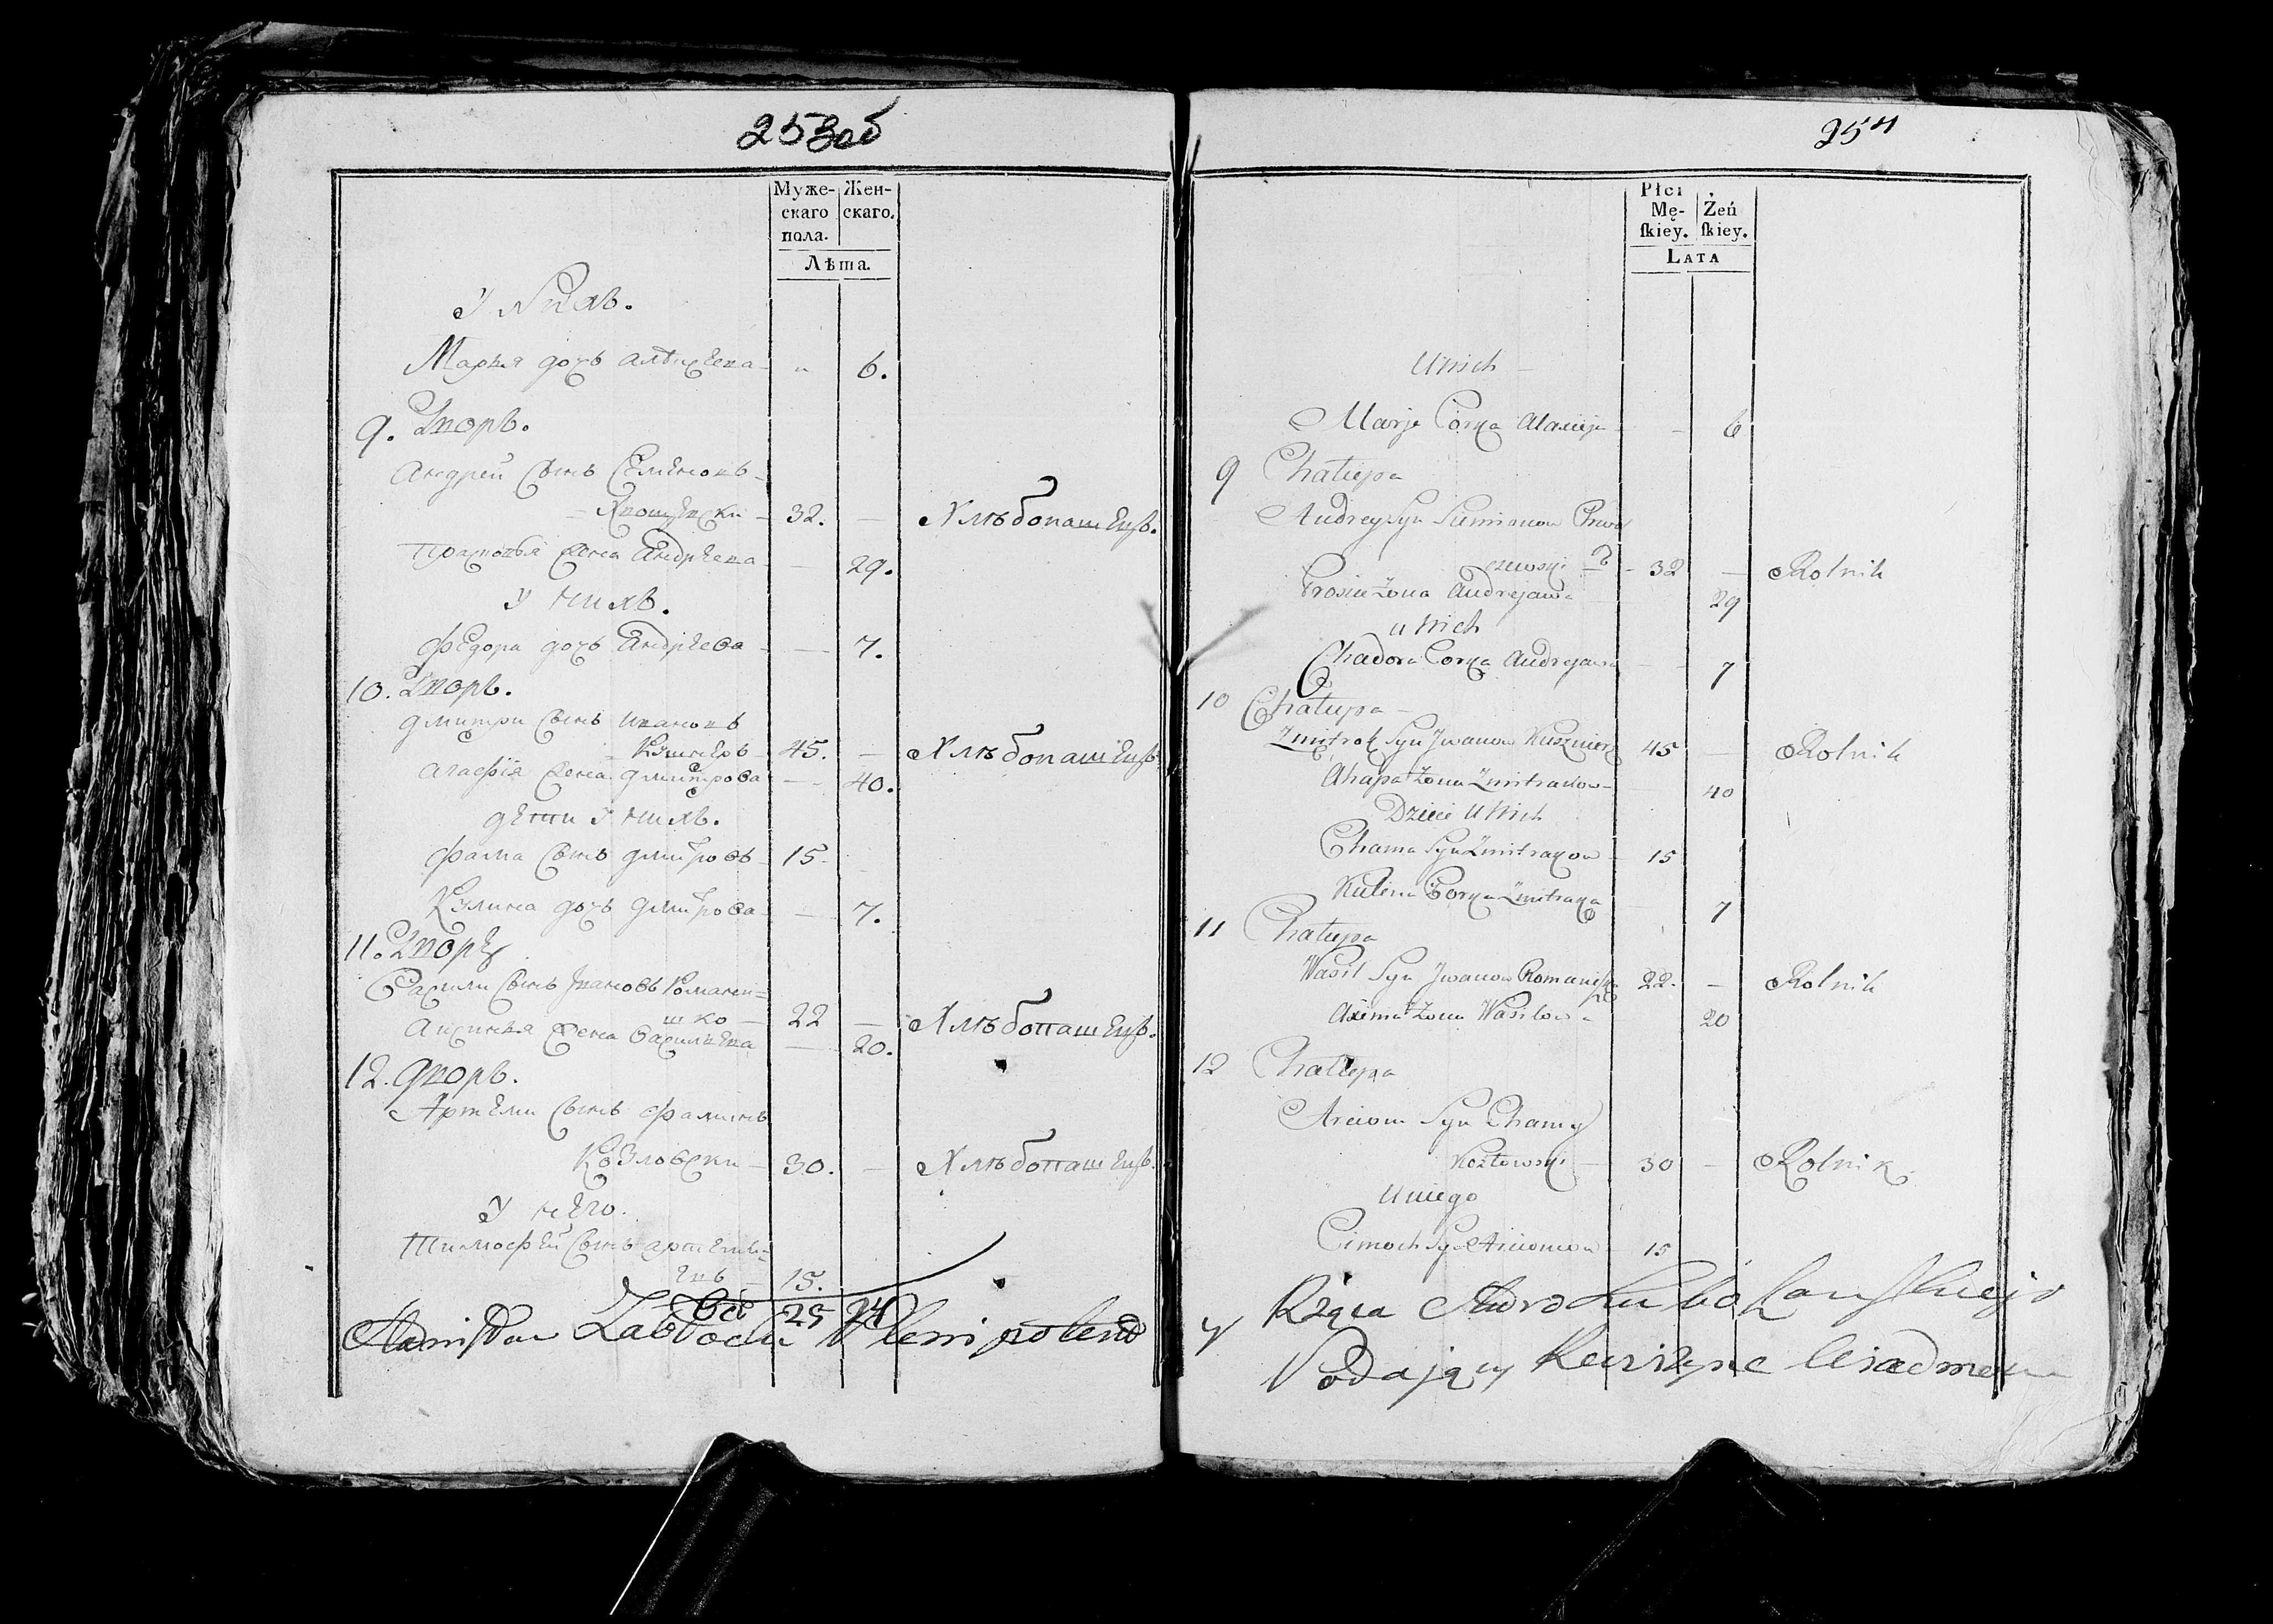 253об
Муже- Жен-
скаго скаго.
пола.
Лѣта.
У Нихъ.
Марья дочь алѣисѣева - " 6.
9. Дворъ.
Андрей Сынъ Семеновъ -
32. — Хлѣбопашецъ.
жена Андрѣева — 29.
У нихъ.
Федора дочь Андрѣева — 7.
10. Дворъ.
Дмитри Сынъ Ивановъ
Кушнеръ 45. — Хлѣбопашецъ
агафія жена дмитрова — 40.
дети У нихъ.
Фама Сынъ дмитровъ 15.
Кулина дочь дмитрова — 7.
11. Дворъ
Василий Сынъ Ивановъ Романи=
шко 22 — Хлѣбопашецъ.
Аксинья жена Василѣева — 20.
12. Дворъ.
Артеми Сынъ Фаминъ
Козловски — 30. — Хлѣбопашецъ.
У него.
Тимофей Сынъ артемь=
евъ — 15.
25 24
Plenipotent
254
Płci
Mę- Żeń
skiey. skiey.
LATA
U Nich
Marja Corka 6
9 Chałupa
Andrey Syn Simionow
czewski 32 — Rolnik
Prosia Żona Andrejawa 29
u Nich
Chadora Corka Andrejawa — 7
10 Chałupa
Zmitrok Syn Jwanow Kusznierz 45 — Rolnik
Ahapa Żona Zmitrakow 40
Dzieci U Nich
Chama Syn Zmitrakow 15
Kulina Corka Zmitraka 7
11 Chałupa
Wasil Syn Jwanow Romaniszko 22. — Rolnik
Axima Żona Wasilow 20
12 Chałupa
Arciom Syn Chamy
Kozłowski — 30 — Rolnik
U niego
Cimoch Syn Arciomow 15
Podający